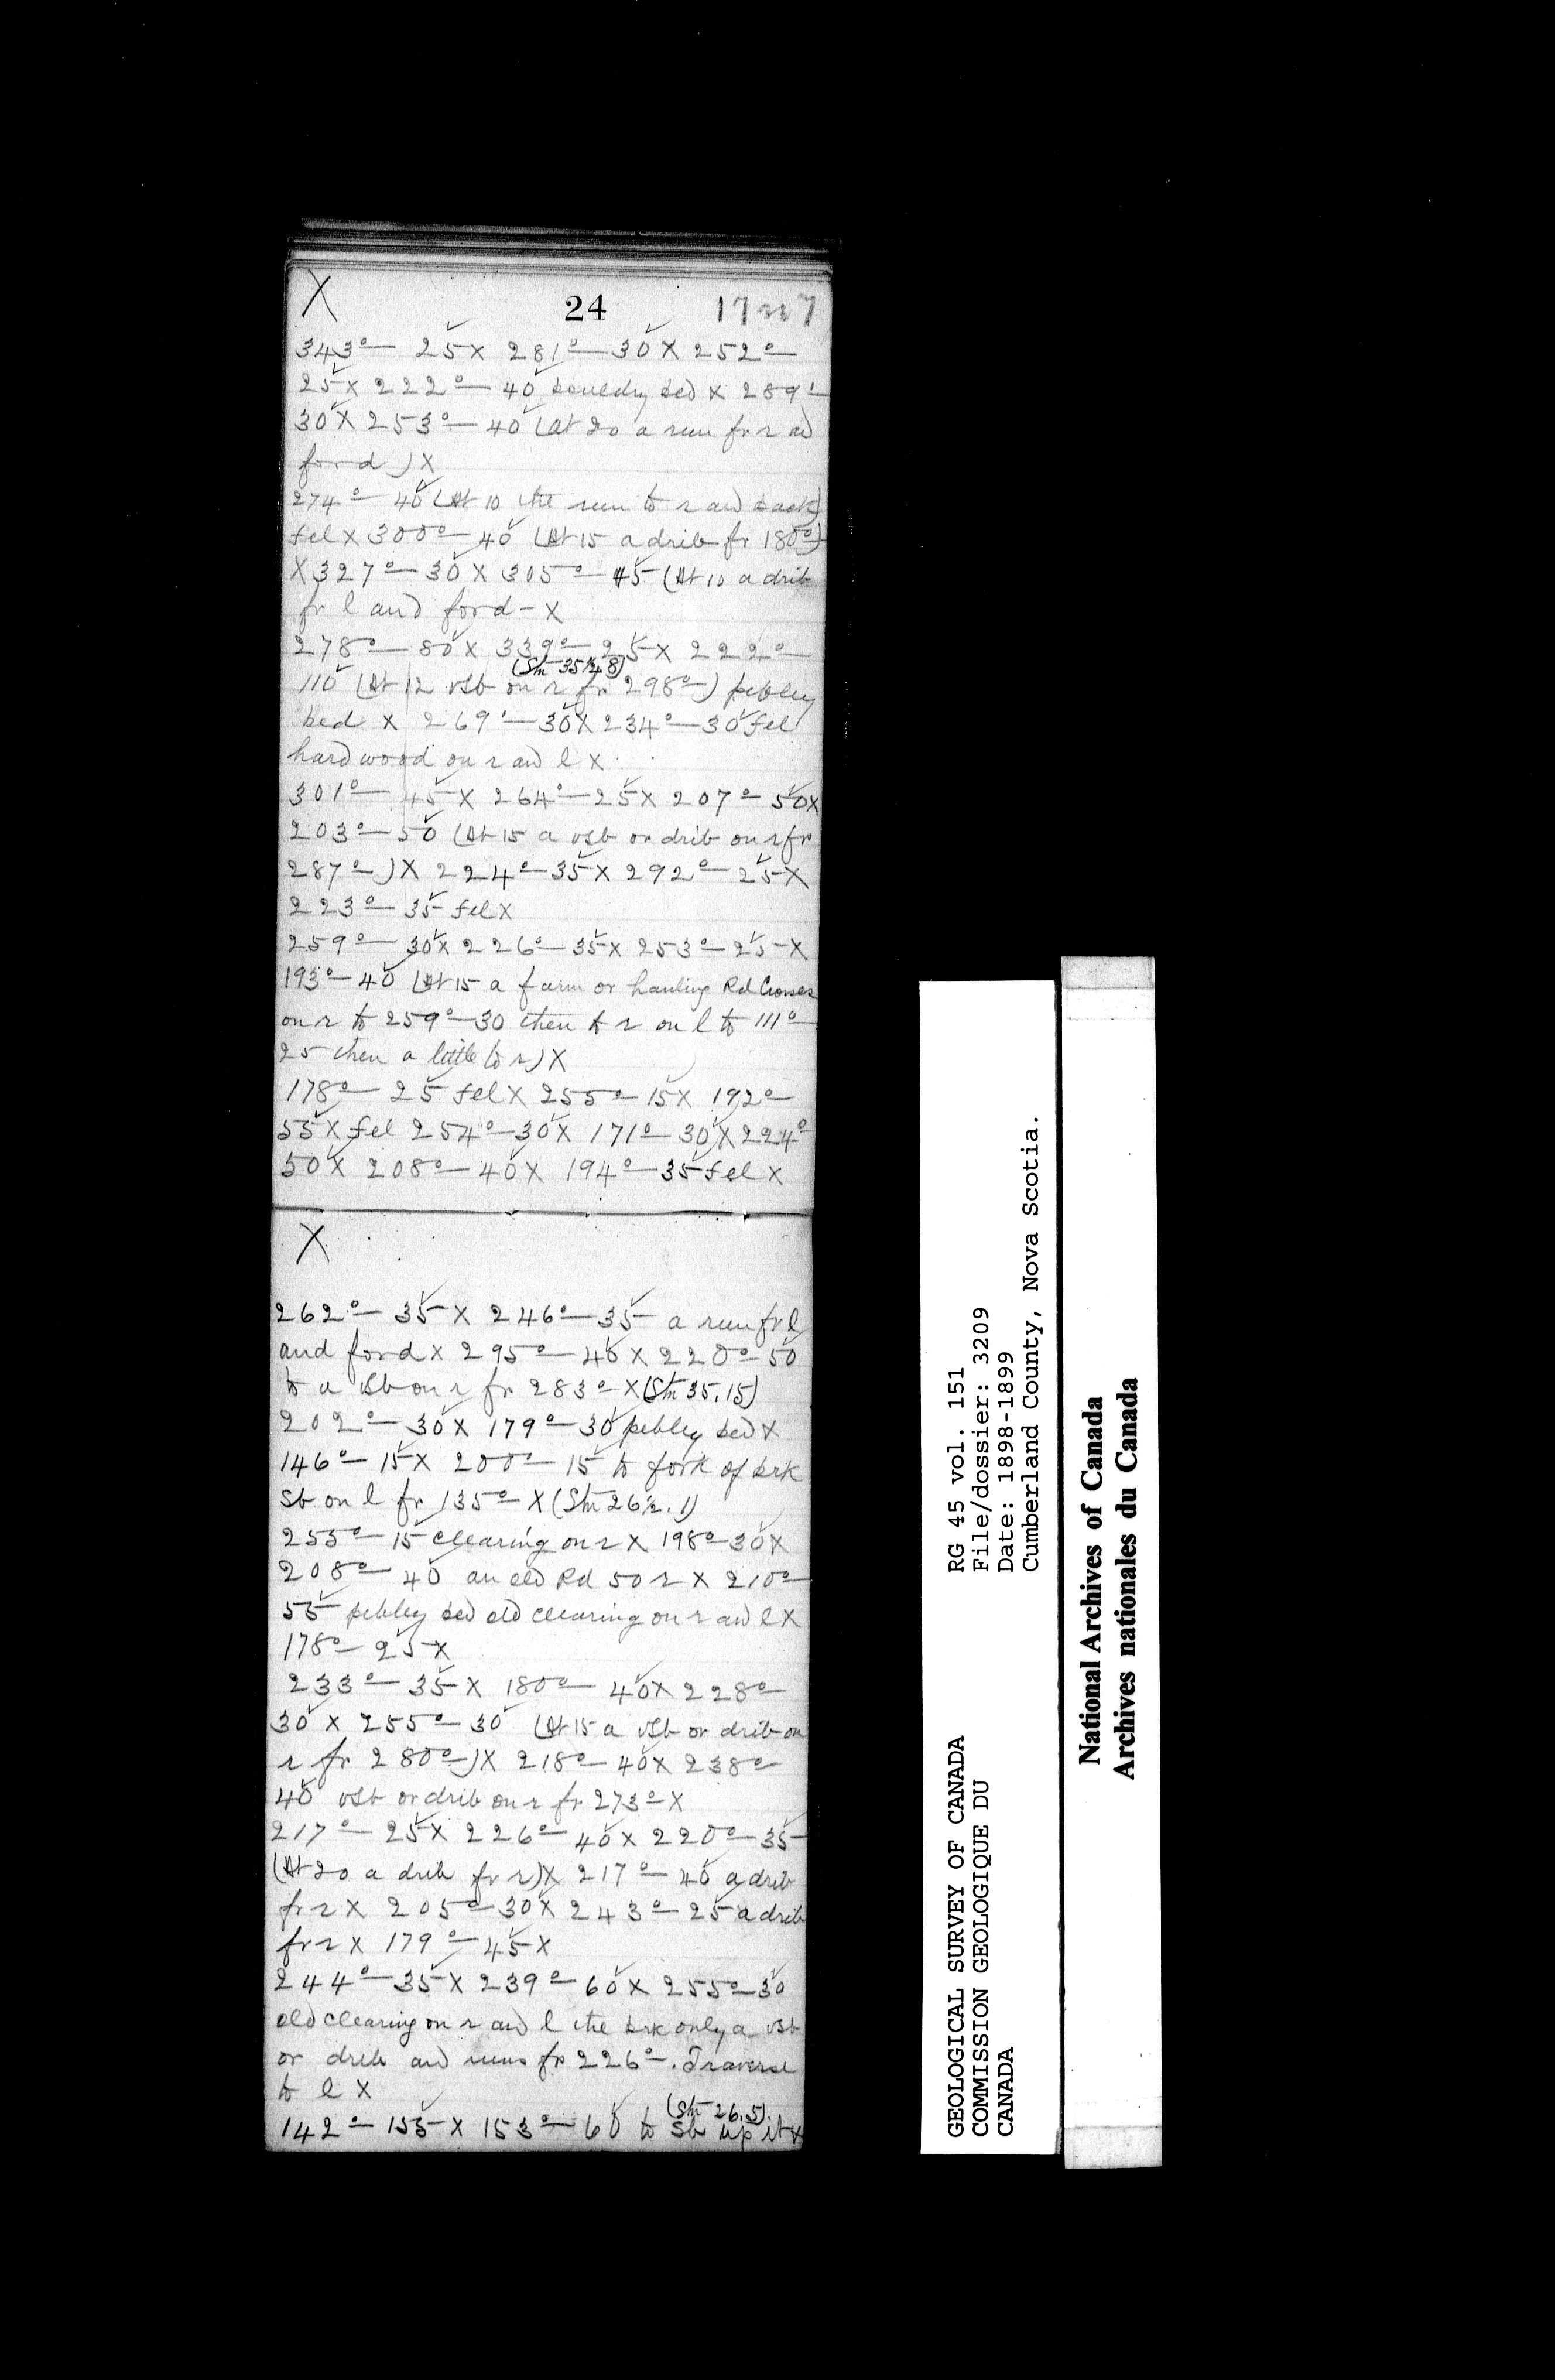 X 24 17n7
343°— 25 X 281°— 30 X 252°—
25 X 222°— 40 bouldry bed X 289°—
30 X 253°— 40 (at 20 a run fr r and
ford) X
274°— 40 (At 10 the run to r and back)
fel X 300°— 40 (At 15 a drib fr 180°)
X 327°— 30 X 305°— 45 (At 10 a drib
fr l and ford — X
278°— 80 X 339°— 25 X 222°—
(Stn 35½.8)
110 (At 12 vsb on r fr 298°—) pebbley
bed X 269°— 30 X 234°— 30 fel
hardwood on r and l X
301°— 45 X 264°— 25 X 207°— 50 X
203°— 50 (At 15 a vsb or drib on r fr
287°—) X 224°— 35 X 292°— 25 X
223°— 35 fel X
259°— 30 X 226°— 35 X 253°— 25 — X
193°— 40 (At 15 a farm or hauling Rd Crosses
on r to 259°— 30 then to r on l to 111°—
25 then a little to r) X
178°— 25 fel X 255°— 15 X 192°—
55 X fel 254°— 30 X 171°— 30 X 224°
50 X 208°— 40 X 194°— 35 fel X
X
262°— 35 X 246°— 35 a run fr l
and ford X 295°— 40 X 220°— 50
to a vsb on r fr 283°— X (Stn 35.15)
202°— 30 X 179°— 30 pebbley bed X
146°— 15 X 200°— 15 to fork of brk
Sb on l fr 135°— X (Stn 26½.1)
255°— 15 clearing on r X 198°— 30 X
208°— 40 an old Rd 50 r X 210°—
55 pebbley bed old clearing on r and l X
178°— 25 X
233°— 35 X 180°— 40 X 228°—
30 X 255°— 30 (At 15 a vsb or drib on
r fr 280°—) X 218°— 40 X 238°—
40 vsb or drib on r fr 273°— X
217°— 25 X 226°— 40 X 220°— 35
(At 20 a drib fr r) X 217°— 40 a drib
fr r X 205°— 30 X 243°— 25 a drib
fr r X 179°— 45 X
244°— 35 X 239°— 60 X 255°— 30
old clearing on r and l the brk only a vsb
or drib and runs fr 226°—. Traverse
to l X
(Stn 26.5)
142°— 155 X 153°— 60 to Sb up it X
GEOLOGICAL SURVEY OF CANADA RG 45 vol. 151
COMMISSION GEOLOGIQUE DU File/dossier: 3209
CANADA Date: 1898-1899
Cumberland County, Nova Scotia.
National Archives of Canada
Archives nationales du Canada